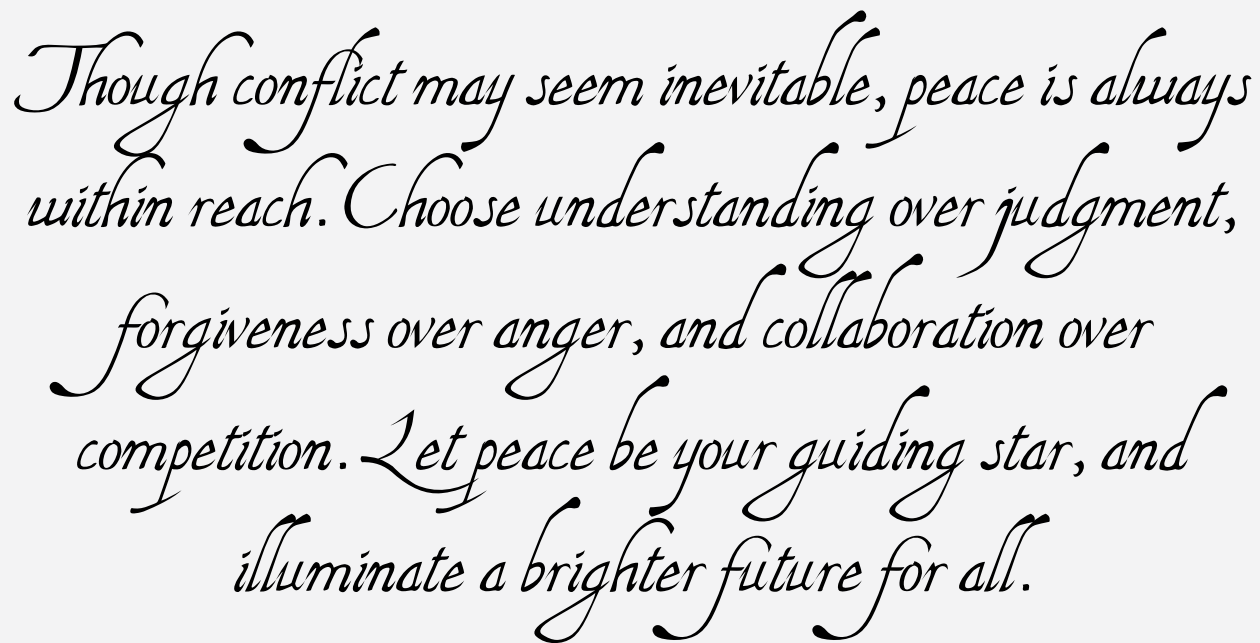 Though conflict may seem inevitable, peace is always
within reach. Choose understanding over judgment,
forgiveness over anger, and collaboration over
competition. Let peace be your guiding star, and
illuminate a brighter future for all.